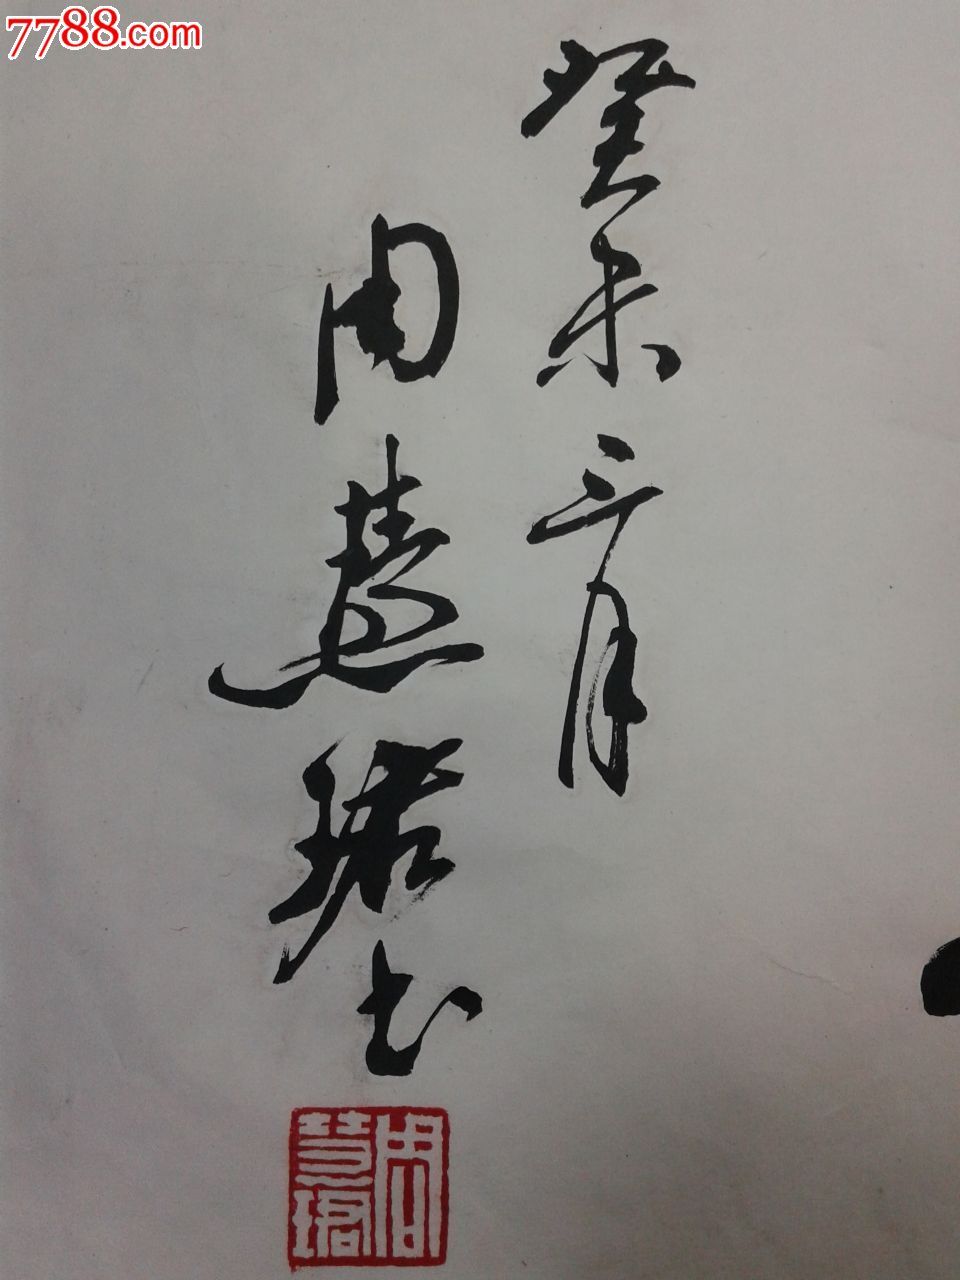 7788.com
癸未三月
周慧珺书
周慧珺